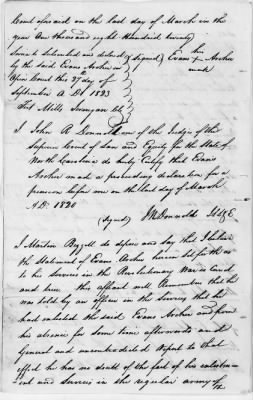 Court aforesaid on the last day of March in the
year One thousand eight Hundred twenty
Sworn to Subscribed and declared (signed) Evan his
by the said Evans Archer in X Archer
Open Court this 27th day of mark
September A D 1823
Test Mills
I John R Donnell one of the Judges of the
Supreme Court of Law and Equity for the State of
North Carolina do hereby Certify that Evans
Archer made a preceeding declaration for a
pension before me on the last day of March
AD. 1820
(Signed)
I do depose and say that I believe
the Statement of Evans Archer herein set forth as
to his Service in the Revolutionary War is correct
and true. this affiant will Remember that he
was told by an officer in the Service that he
had enlisted the said Evans Archer and from
his absence for some time afterwards and
General and uncontradicted report to that
effect he has no doubt of the fact of his enlistm-
ent and Services in the regular army &c